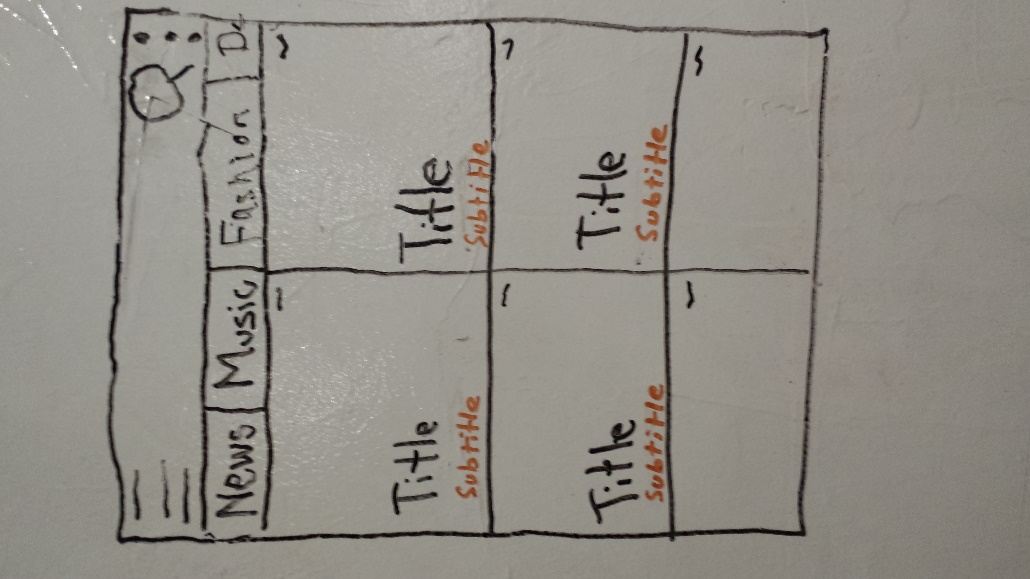 News Music Fashion D
Title Title
Subtitle Subtitle
Title Title
Subtitle Subtitle